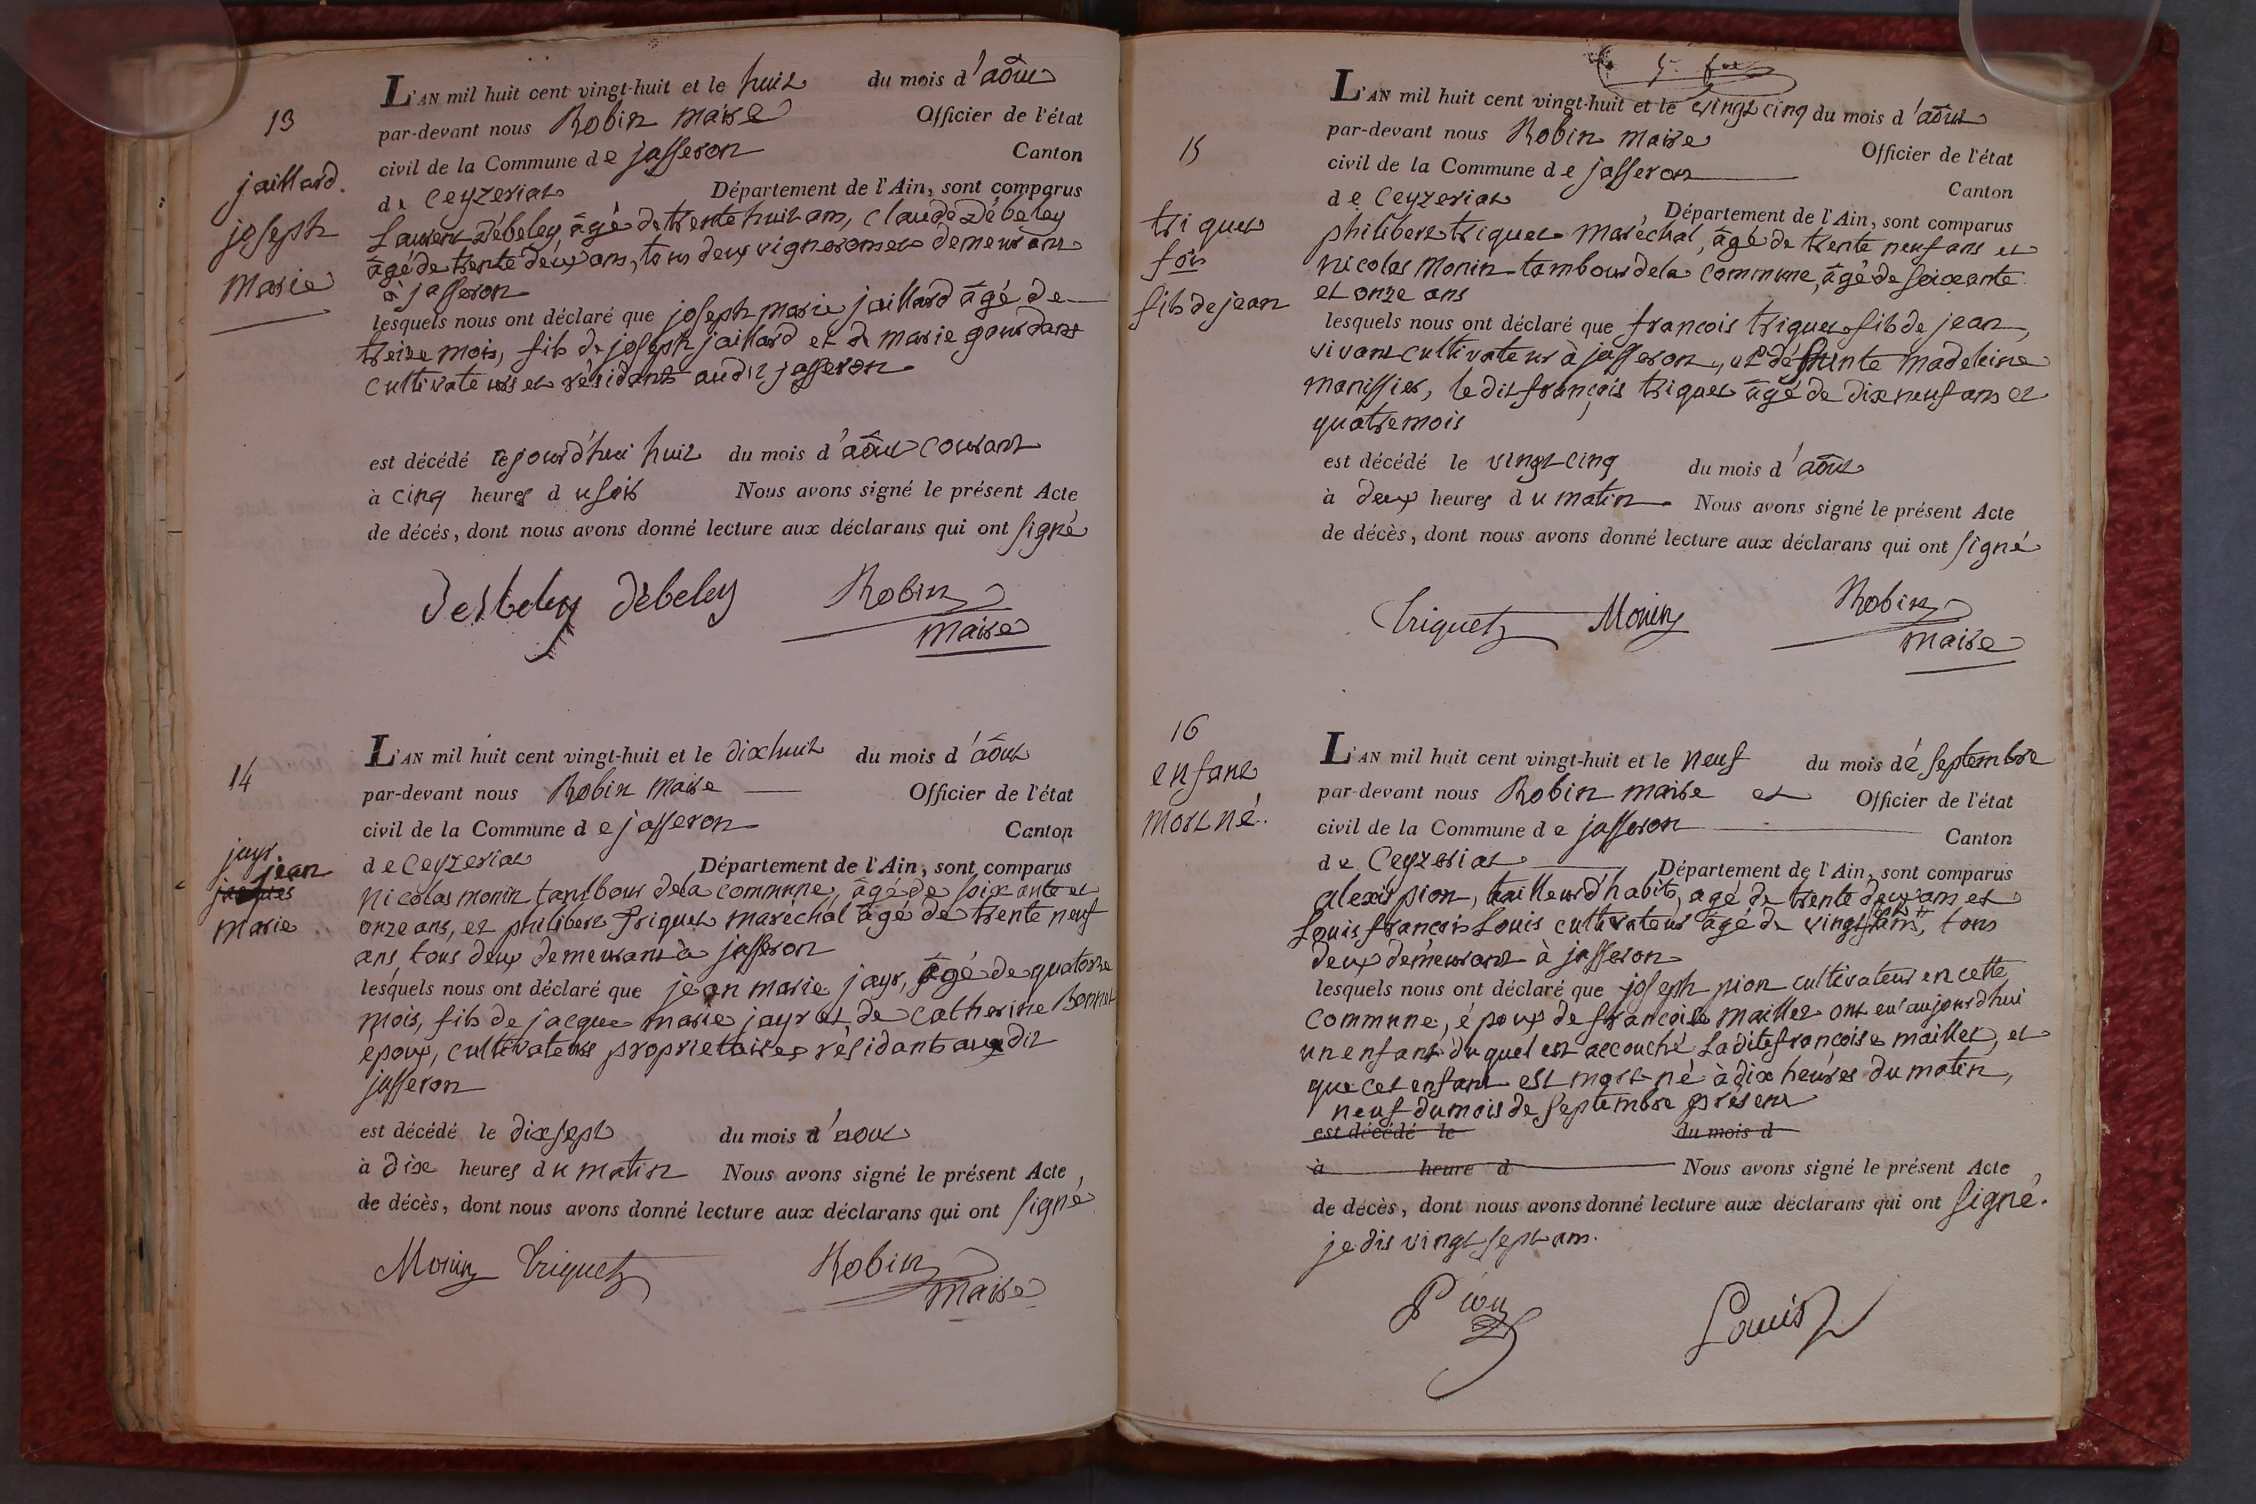 13
jaillard.
joseph
marie
L'AN mil huit cent vingt-huit et le huit du mois d'aôut
par-devant nous Robin maire Officier de l'état
civil de la Commune de jasseron Canton
de Ceyzeriat Département de l'Ain, sont comparus
Laurent Débeley, âgé de trente huit ans, Claude Débeley
âgé de trente deux ans, tous deux vignerons et demeurant
à jasseron
lesquels nous ont déclaré que joseph marie jaillard âgé de
treize mois, fils de joseph jaillard et de marie gourdant
cultivateurs et résidants audit jasseron
est décédé cejourd'hui huit du mois d'aôut courant
à cinq heures du soir Nous avons signé le présent Acte
de décès, dont nous avons donné lecture aux déclarans qui ont signé
debeley Débeley Robin
maire
14
jayr.
jean
jacques
marie
L'AN mil huit cent vingt-huit et le dix huit du mois d'aôut
par-devant nous Robin maire Officier de l'état
civil de la Commune de jasseron Canton
de Ceyzeriat Département de l'Ain, sont comparus
Nicolas monin tambour dela commune, âgé de soixante et
onze ans, et philibert triquet maréchal âgé de trente neuf
ans tous deux demeurant à jasseron
lesquels nous ont déclaré que jean marie jayr, âgé de quatorze
mois, fils de jacque marie jayr et de catherine Bonnet
epoux, cultivateurs proprietaires résidants audit
jasseron
est décédé le dix sept du mois d'aout
à dix heures du matin Nous avons signé le présent Acte
de décès, dont nous avons donné lecture aux déclarans qui ont signé
Monin Triquet Robin
maire
15
triquet
fois
fils de jean
L'AN mil huit cent vingt-huit et le vingt cinq du mois d'aôut
par-devant nous Robin maire Officier de l'état
civil de la Commune de jasseron Canton
de Ceyzeriat Département de l'Ain, sont comparus
philibert triquet maréchal, âgé de trente neuf ans et
Nicolas Monin tambour dela commune, âgé de soixante
et onze ans
lesquels nous ont déclaré que françois triquet fils de jean,
vivant cultivateur à jasseron, et défunte madeleine
manissier, le dit françois triquet âgé de dix neuf ans et
quatre mois
est décédé le vingt cinq du mois d'aôut
à deux heures du matin Nous avons signé le présent Acte
de décès, dont nous avons donné lecture aux déclarans qui ont signé
Triquet Monin Robin
maire
16
enfant
mort né.
L'AN mil huit cent vingt-huit et le neuf du mois de septembre
par-devant nous Robin maire et Officier de l'état
civil de la Commune de jasseron Canton
de Ceyzeriat Département de l'Ain, sont comparus
alexis pion, tailleur d'habits, agé de trente deux ans et
Louis françois Louis cultivateur âgé de vingt sept ans, tous
deux demeurant à jasseron
lesquels nous ont déclaré que joseph pion cultivateur en cette
commune, époux de francoise maillet ont eu aujourdhui
un enfant duquel est accouché Ladite françoise maillet, et
que cet enfant est mort-né à dix heures du matin,
neuf du mois de septembre présent
est décédé le du mois d
à heure d Nous avons signé le présent Acte
de décès, dont nous avons donné lecture aux déclarans qui ont signé.
je dis vingt sept ans.
Pion Louis